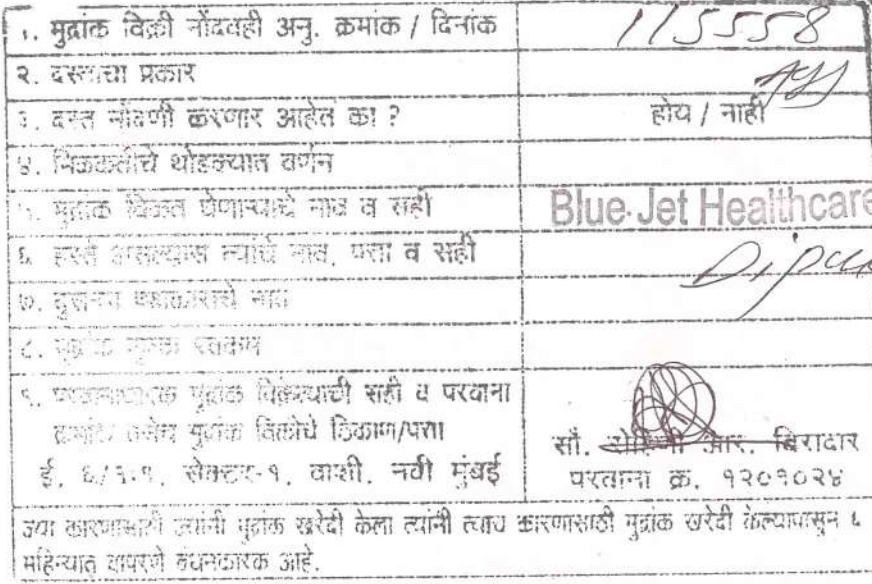 १. मुद्रांक विक्री नोंदवही अनु. क्रमांक / दिनांक 115558
२. दस्ताचा प्रकार
३. दस्त नोंदणी करणार आहेत का ? होय / नाही
४. मिळकतीचे थोडक्यात वर्णन
५. मुद्रांक विकत घेणाऱ्याचे नाव व सही Blue Jet Healthcare
६. हस्ते असल्यास त्यांचे नाव, पत्ता व सही
७. दुसऱ्या पक्षकाराचे नाव
८. मुद्रांक शुल्क रक्कम
९. परवानाधारक मुद्रांक विक्रेत्याची सही व परवाना
क्रमांक तसेच मुद्रांक विक्रीचे ठिकाण/पत्ता सौ. आर. बिरादार
ई. ६/१:१, सेक्टर-१, वाशी. नवी मुंबई परवाना क्र. १२०१०२४
ज्या कारणासाठी ज्यांनी मुद्रांक खरेदी केला त्यांनी त्याच कारणासाठी मुद्रांक खरेदी केल्यापासुन ६
महिन्यात वापरणे बंधनकारक आहे.